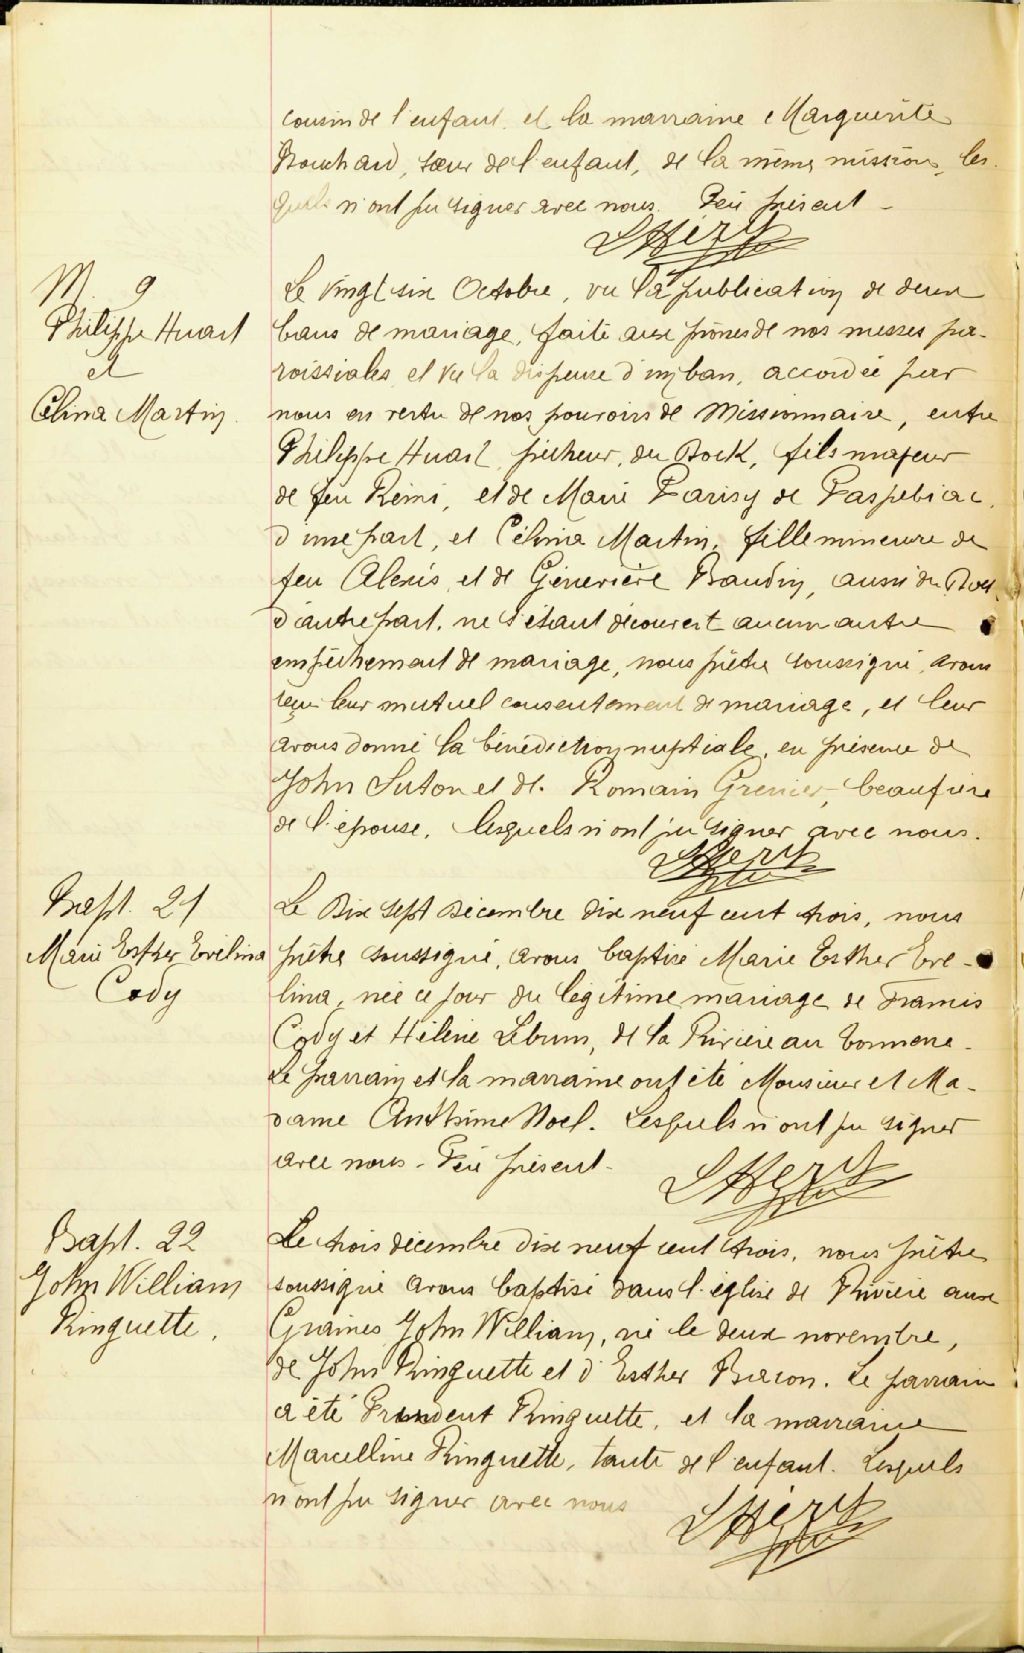 cousin de l'enfant et la marraine Marguerite
Bouchard, sœur de l'enfant, de la même mission, les
quels n'ont pu signer avec nous. Père présent -
L Héry ptre
M. 9
Philippe Huart
et
Célina Martin
Le vingt six Octobre, vu la publication de deux
bans de mariage, faite aux prônes de nos messes pa-
roissiales et vu la dispense d'un ban, accordée par
nous en vertu de nos pouvoirs de Missionnaire, entre
Philippe Huart, pêcheur, du Dock, fils majeur
de feu Rémi, et de Marie Parisy de Paspebiac,
d'une part, et Célina Martin, fille mineure de
feu Alexis et de Géneviève Baudin, aussi du Dock,
d'autre part, ne s'étant découvert aucun autre
empêchement de mariage, nous prêtre soussigné, avons
reçu leur mutuel consentement de mariage, et leur
avons donné la bénédiction nuptiale, en présence de
John Suton et de Romain Grenier, beaufrère
de l'épouse, lesquels n'ont pu signer avec nous.
L Héry ptre
Bapt. 21
Marie Esther Evélina
Cody
Le Dix Sept Décembre dix neuf cent trois, nous
prêtre soussigné, avons baptisé Marie Esther Eve-
lina, née ce jour du légitime mariage de Francis
Cody et Hélène Lebrun, de la Rivière au Tonnerre.
Le parrain et la marraine ont été Monsieur et Ma-
dame Anthime Noel. Lesquels n'ont pu signer
avec nous - Père présent.
L Héry ptre
Bapt. 22
John William
Ringuette.
Le trois décembre dix neuf cent trois, nous prêtre
soussigné avons baptisé dans l'église de Rivière aux
Graines John William, né le deux novembre,
de John Ringuette et d'Esther Bacon. Le parrain
a été Prudent Ringuette, et la marraine
Marcelline Ringuette, tante de l'enfant. Lesquels
n'ont pu signer avec nous
L Héry ptre